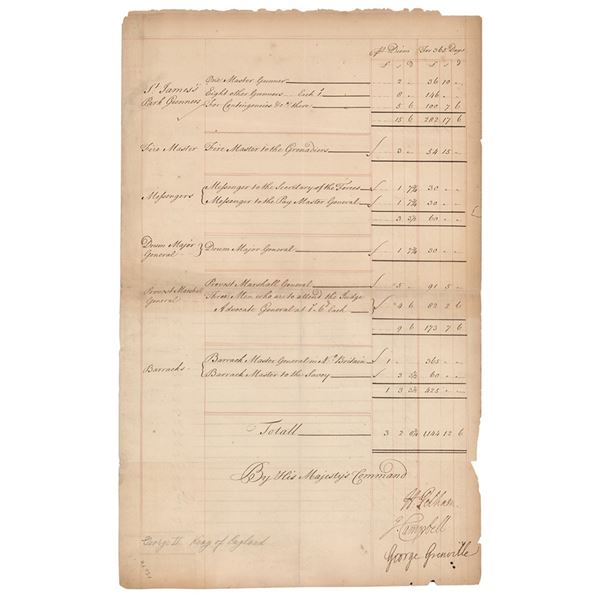 P. Diem For 365 Days
£ s d £ s d
St. James's Park Gunners
One Master Gunner — 2 - 36 10 -
Eight other Gunners Each 1s. — 8 - 146 - -
For Contingencies &ca. there — 5 6 100 7 6
15 6 282 17 6
Fire Master Fire Master to the Grenadiers — £ - 3 - 54 15 -
Messengers
Messenger to the Secretary of the Forces — £ - 1 7¾ 30 - -
Messenger to the Pay Master General — £ - 1 7¾ 30 - -
3 3½ 60 - -
Drum Major General } Drum Major General — £ - 1 7¾ 30 - -
Provost Marshall General
Provost Marshall General — £ - 5 - 91 5 -
Three Men who are to attend the Judge
Advocate General at 1s. 6d. Each — £ - 4 6 82 2 6
9 6 173 7 6
Barracks
Barrack Master General in No. Britain — £ 1 - - 365 - -
Barrack Master to the Savoy — £ - 3 3½ 60 - -
1 3 3½ 425 - -
Totall — 3 2 8¾ 1,144 12 6
By His Majesty's Command
H Pelham
J Campbell
George Grenville
George II King of England